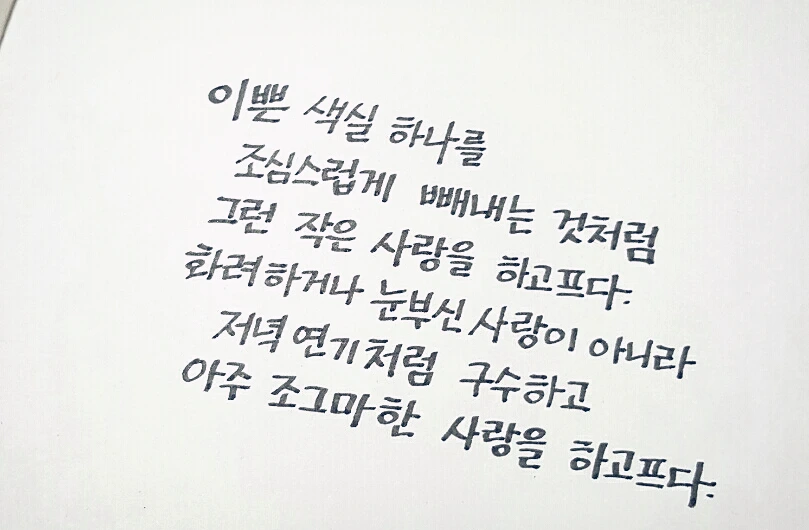 이쁜 색실 하나를
조심스럽게 빼내는 것처럼
그런 작은 사랑을 하고프다.
화려하거나 눈부신 사랑이 아니라
저녁 연기처럼 구수하고
아주 조그마한 사랑을 하고프다.